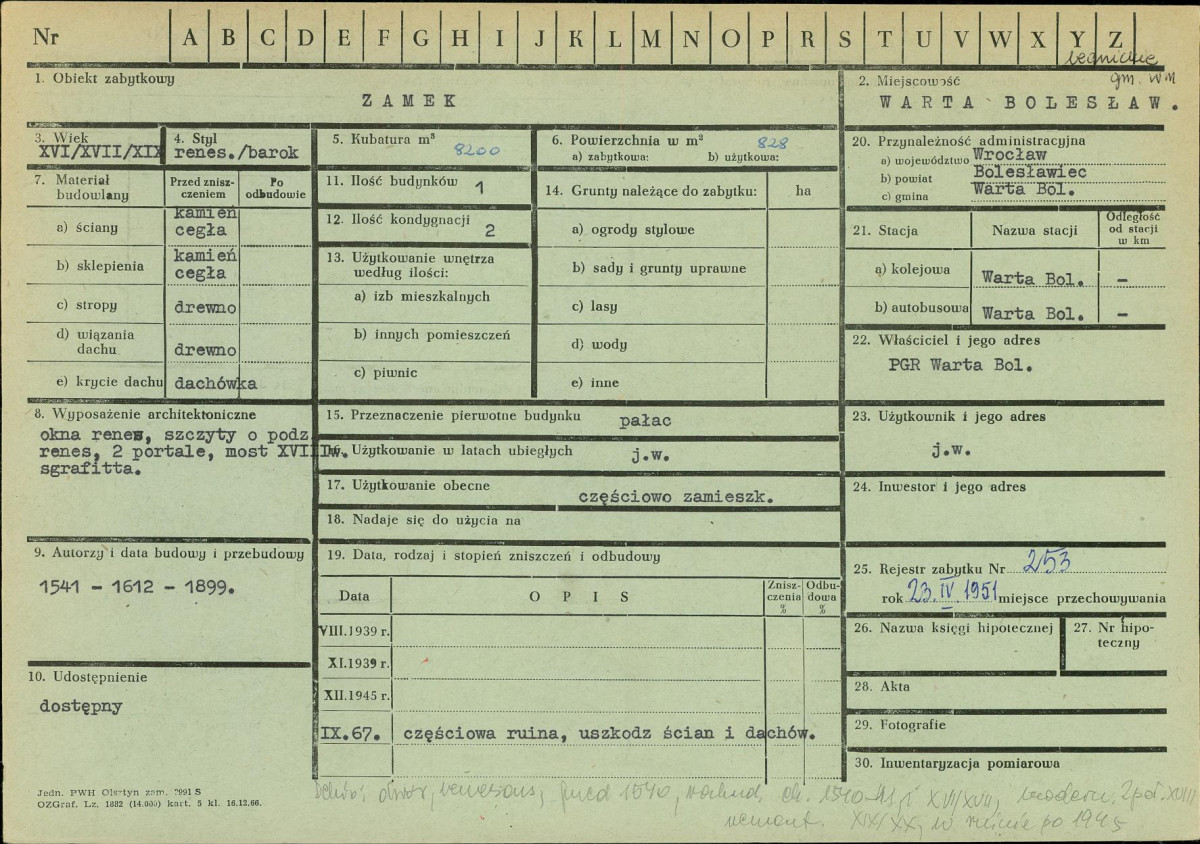 Nr A B C D E F G H I J K L M N O P R S T U V W X Y Z
1. Obiekt zabytkowy
ZAMEK
2. Miejscowość
gm. WM
WARTA BOLESŁAW.
3. Wiek
XVI/XVII/XIX
4. Styl
renes./barok
5. Kubatura m³
8200
6. Powierzchnia w m²
828
a) zabytkowa: b) użytkowa:
7. Materiał budowlany
Przed zniszczeniem
Po odbudowie
a) ściany
kamień
cegła
b) sklepienia
kamień
cegła
c) stropy
drewno
d) wiązania dachu
drewno
e) krycie dachu
dachówka
8. Wyposażenie architektoniczne
okna renes, szczyty o podz.
renes, 2 portale, most XVIIIw.
sgrafitta.
9. Autorzy i data budowy i przebudowy
1541 - 1612 - 1899.
10. Udostępnienie
dostępny
11. Ilość budynków
1
12. Ilość kondygnacji
2
13. Użytkowanie wnętrza
według ilości:
a) izb mieszkalnych
b) innych pomieszczeń
c) piwnic
14. Grunty należące do zabytku: ha
a) ogrody stylowe
b) sady i grunty uprawne
c) lasy
d) wody
e) inne
15. Przeznaczenie pierwotne budynku
pałac
16. Użytkowanie w latach ubiegłych
j.w.
17. Użytkowanie obecne
częściowo zamieszk.
18. Nadaje się do użycia na
19. Data, rodzaj i stopień zniszczeń i odbudowy
Data
OPIS
Zniszczenia %
Odbudowa %
VIII.1939 r.
XI.1939 r.
XII.1945 r.
IX.67. częściowa ruina, uszkodz ścian i dachów.
20. Przynależność administracyjna
a) województwo Wrocław
b) powiat Bolesławiec
c) gmina Warta Bol.
21. Stacja
Nazwa stacji
Odległość od stacji w km
a) kolejowa Warta Bol. -
b) autobusowa Warta Bol. -
22. Właściciel i jego adres
PGR Warta Bol.
23. Użytkownik i jego adres
j.w.
24. Inwestor i jego adres
25. Rejestr zabytku Nr 253
rok 23.IV.1951 miejsce przechowywania
26. Nazwa księgi hipotecznej
27. Nr hipoteczny
28. Akta
29. Fotografie
30. Inwentaryzacja pomiarowa
Jedn. PWH Olsztyn zam. 2991 S
OZGraf. Lz. 1882 (14.000) kart. 5 kl. 16.12.66.
przed 1540, ok. 1540-41, i XVI/XVII, modern. 2 poł. XVIII
remont. XIX/XX, w ruinie po 1945